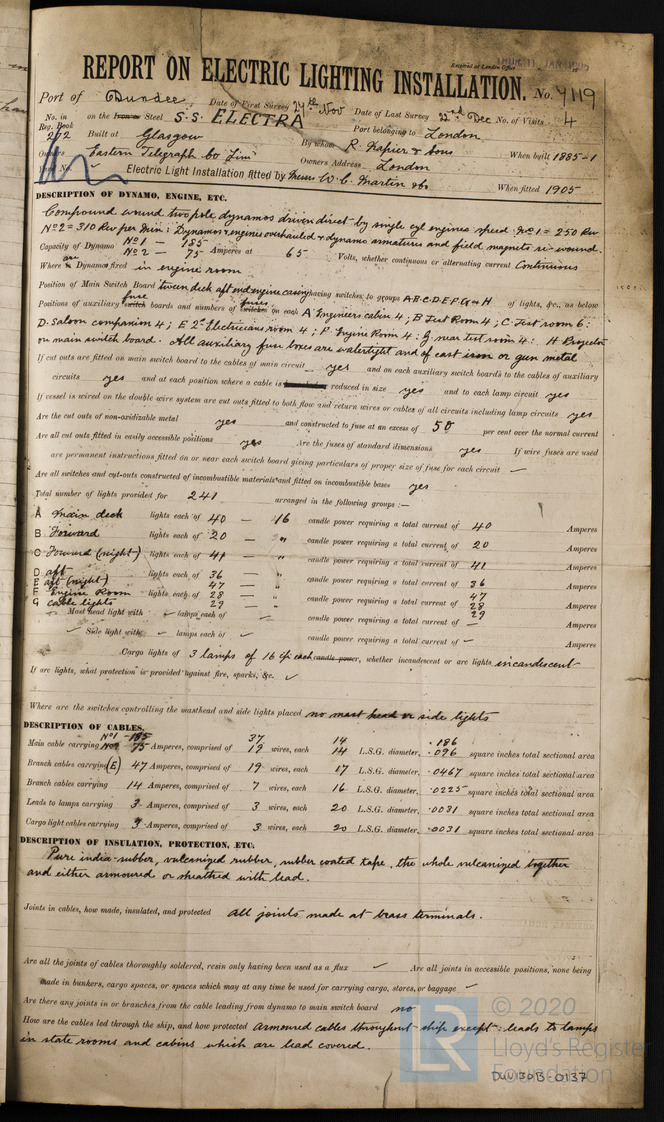 Received at London Office
REPORT ON ELECTRIC LIGHTING INSTALLATION. No. 4119
Port of Dundee Date of First Survey 27th Nov Date of Last Survey 22nd Dec No. of Visits 4
No. in Reg. Book 272 on the Iron or Steel S.S. ELECTRA Port belonging to London
Built at Glasgow By whom R. Napier & Sons When built 1885-1
Owners Eastern Telegraph Co Lim Owners Address London
Electric Light Installation fitted by Messrs W. C. Martin & Co When fitted 1905
DESCRIPTION OF DYNAMO, ENGINE, ETC.
Compound wound two pole dynamos driven direct by single cyl engines speed No 1 = 250 Rev
No 2 = 310 Rev per Min: Dynamos & engines overhauled & dynamo armatures and field magnets re-wound.
Capacity of Dynamo No 1 — 185
No 2 — 75 Amperes at 65 Volts, whether continuous or alternating current Continuous
Where are Dynamos fixed in engine room
Position of Main Switch Board tween deck aft end engine casing having switches to groups A.B.C.D.E.F.G & H of lights, &c., as below
Positions of auxiliary fuse switch boards and numbers of fuses switches on each A Engineers cabin 4; B Test Room 4; C Test room 6:
D. Saloon companion 4; E 2nd Electricians room 4; F. Engine Room 4: G near test room 4: H Projector
on main switch board. All auxiliary fuse boxes are watertight and of cast iron or gun metal
If cut outs are fitted on main switch board to the cables of main circuit yes and on each auxiliary switch board to the cables of auxiliary
circuits yes and at each position where a cable is reduced in size yes and to each lamp circuit yes
If vessel is wired on the double wire system are cut outs fitted to both flow and return wires or cables of all circuits including lamp circuits yes
Are the cut outs of non-oxidizable metal yes and constructed to fuse at an excess of 50 per cent over the normal current
Are all cut outs fitted in easily accessible positions yes Are the fuses of standard dimensions yes If wire fuses are used
are permanent instructions fitted on or near each switch board giving particulars of proper size of fuse for each circuit ✓
Are all switches and cut-outs constructed of incombustible materials and fitted on incombustible bases yes
Total number of lights provided for 241 arranged in the following groups :—
A Main deck lights each of 40 — 16 candle power requiring a total current of 40 Amperes
B Forward lights each of 20 — " candle power requiring a total current of 20 Amperes
C Forward (night) lights each of 41 — " candle power requiring a total current of 41 Amperes
D aft lights each of 36 — " candle power requiring a total current of 36 Amperes
E aft (night) 47 — " 47
F Engine Room lights each of 28 — " candle power requiring a total current of 28 Amperes
G cable lights 29 — " 29
Mast head light with ✓ lamps each of ✓ candle power requiring a total current of — Amperes
✓ Side light with ✓ lamps each of ✓ candle power requiring a total current of ✓ Amperes
Cargo lights of 3 lamps of 16 cp each candle power, whether incandescent or arc lights incandescent
If arc lights, what protection is provided against fire, sparks, &c. ✓
Where are the switches controlling the masthead and side lights placed no mast head or side lights
DESCRIPTION OF CABLES.
No 1 — 185 37 14 .186
Main cable carrying No 2 75 Amperes, comprised of 19 wires, each 14 L.S.G. diameter, .096 square inches total sectional area
Branch cables carrying (E) 47 Amperes, comprised of 19 wires, each 17 L.S.G. diameter, .0467 square inches total sectional area
Branch cables carrying 14 Amperes, comprised of 7 wires, each 16 L.S.G. diameter, .0225 square inches total sectional area
Leads to lamps carrying 3 Amperes, comprised of 3 wires, each 20 L.S.G. diameter, .0031 square inches total sectional area
Cargo light cables carrying 3 Amperes, comprised of 3 wires, each 20 L.S.G. diameter, .0031 square inches total sectional area
DESCRIPTION OF INSULATION, PROTECTION, ETC.
Pure india rubber, vulcanized rubber, rubber coated tape, the whole vulcanized together
and either armoured or sheathed with lead.
Joints in cables, how made, insulated, and protected all joints made at brass terminals.
Are all the joints of cables thoroughly soldered, resin only having been used as a flux ✓ Are all joints in accessible positions, none being
made in bunkers, cargo spaces, or spaces which may at any time be used for carrying cargo, stores, or baggage ✓
Are there any joints in or branches from the cable leading from dynamo to main switch board no
How are the cables led through the ship, and how protected armoured cables throughout ship except: leads to lamps
in state rooms and cabins which are lead covered.
LR © 2020
Lloyd's Register
Foundation
DUN130B-0137